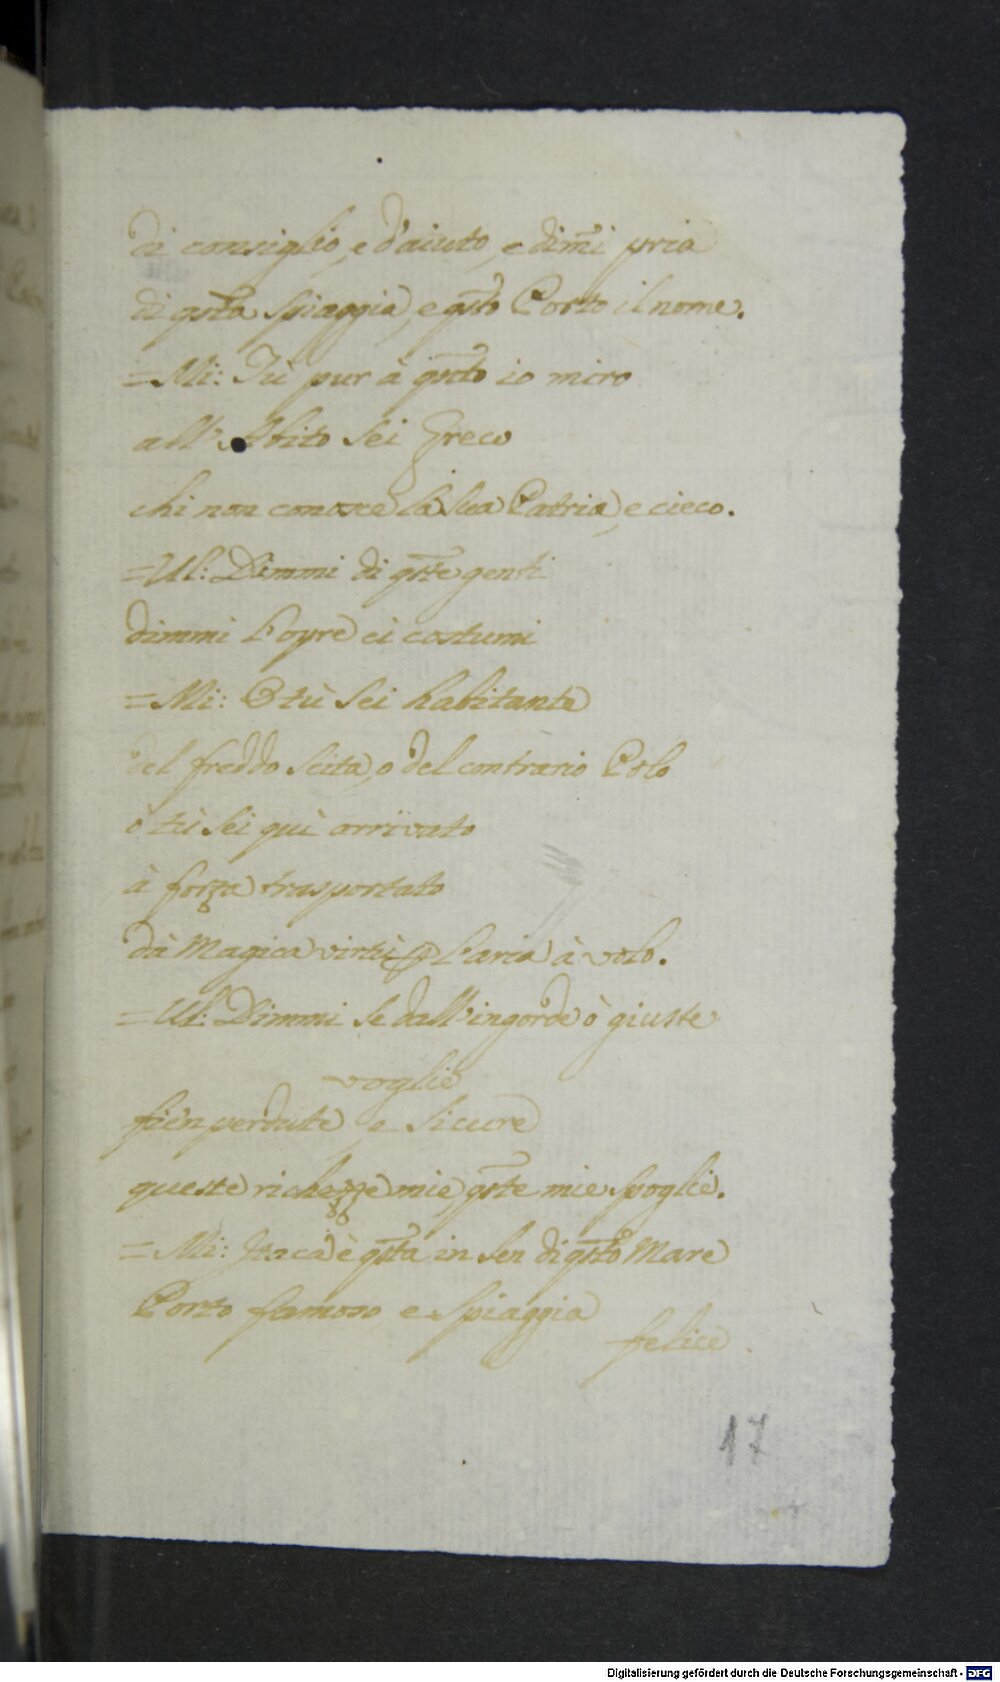 di consiglio, e d'aiuto, e dim̃i pria
di qsta spiaggia, e qsto Porto il nome.
=Mi: Tù pur à qsto io miro
all'Abito sei Greco
chi non conosce la sua Patria, e cieco.
=Ul: Dimmi di qste genti
dimmi l'opre ei costumi
=Mi: O tù sei habitante
del freddo Scita, o del contrario Polo
ò tù sei quì arrivato
à forza trasportato
dà Magica virtù p l'aria à volo.
=Ul: Dimmi se dall'ingorde ò giuste
voglie
fien perdute e sicure
queste richezze mie, qste mie spoglie.
=Mi: Itaca è qsta in sen di qsto Mare
Porto famoso e spiaggia
felice
17
Digitalisierung gefördert durch die Deutsche Forschungsgemeinschaft - DFG